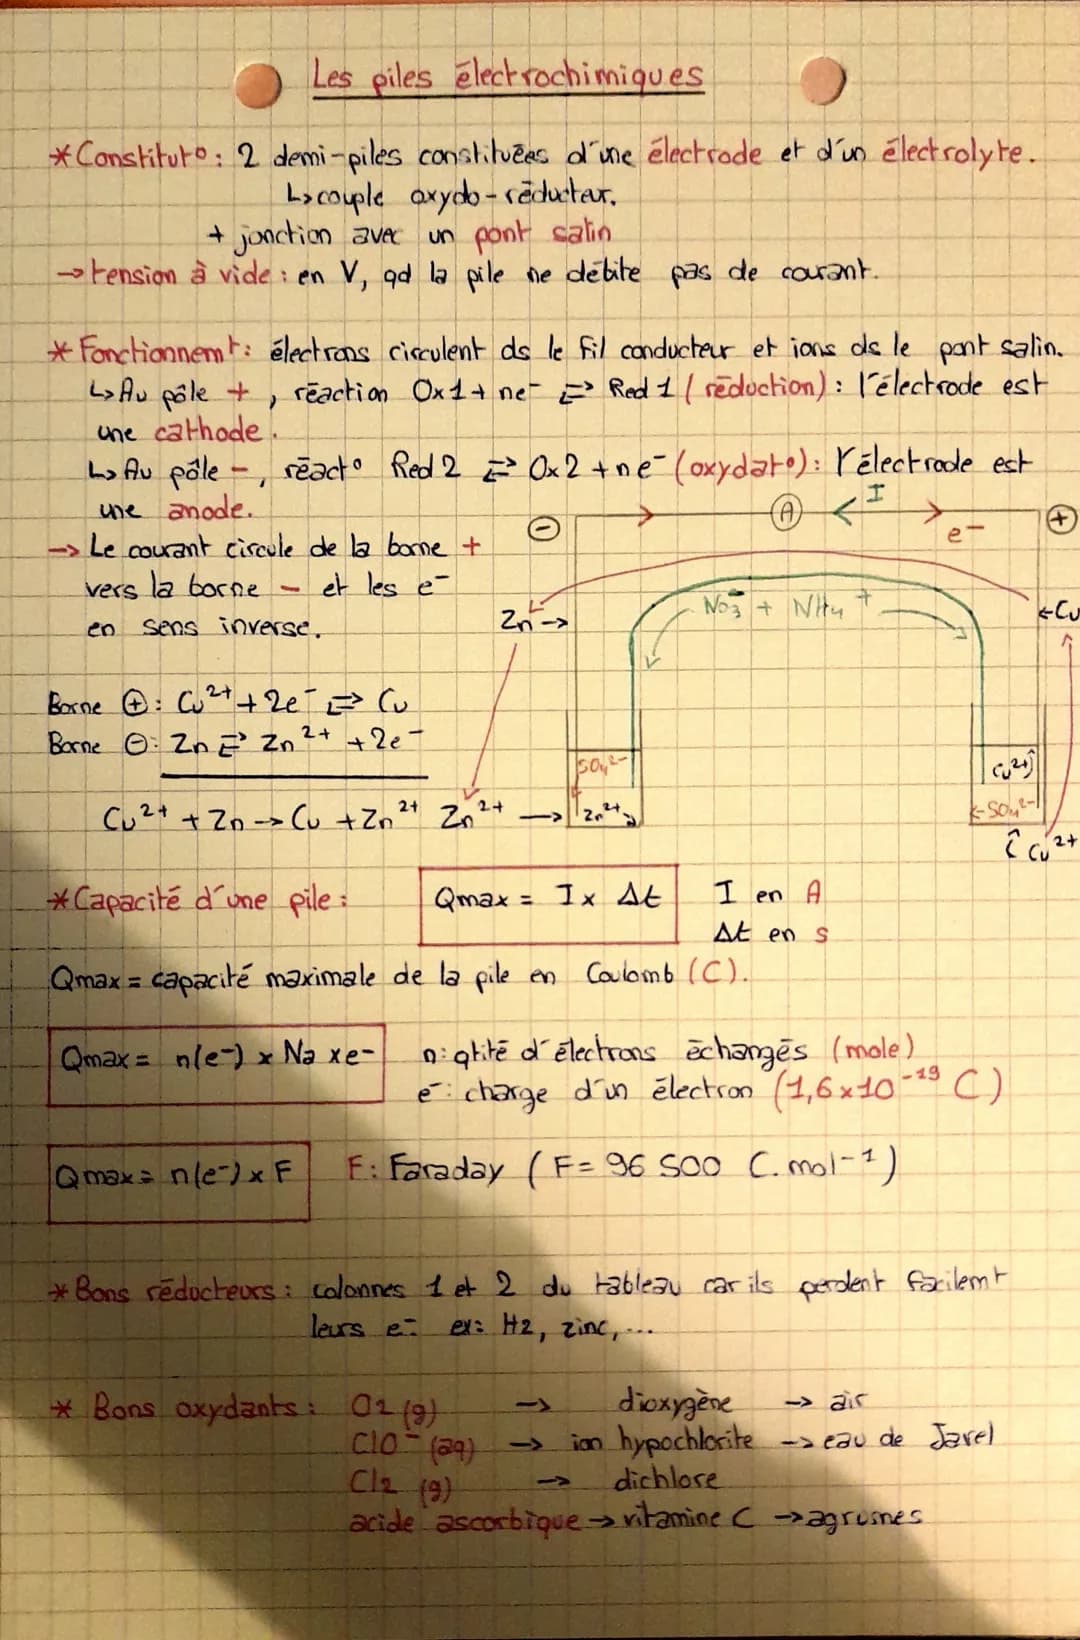 Les piles électrochimiques
*Constitut°: 2 demi-piles constituées d'une électrode et d'un électrolyte.
↳couple oxydo-réducteur.
+ jonction avec un pont salin
→tension à vide: en V, qd la pile ne débite pas de courant.
*Fonctionnemt: électrons circulent ds le fil conducteur et ions ds le pont salin.
↳Au pôle +, réaction Ox1+ne⁻ ⇄ Red 1 (réduction): l'électrode est
une cathode.
↳Au pôle -, réact° Red 2 ⇄ Ox2 +ne⁻ (oxydat°): l'électrode est
une anode.
→ Le courant circule de la borne +
vers la borne - et les e⁻
en sens inverse.
⊖ A I e⁻ ⊕
NO₃⁻ + NH₄⁺
Zn→ ←Cu
Borne ⊕: Cu²⁺+2e⁻ ⇄ Cu
Borne ⊖: Zn ⇄ Zn²⁺ +2e⁻
SO₄²⁻ Cu²⁺
Cu²⁺ + Zn → Cu + Zn²⁺ Zn²⁺ → Zn²⁺ ←SO₄²⁻
Cu²⁺
*Capacité d'une pile: Qmax = I x Δt I en A
Δt en s
Qmax = capacité maximale de la pile en Coulomb (C).
Qmax = n(e⁻) x Na x e⁻ n: qtité d'électrons échangés (mole)
e⁻: charge d'un électron (1,6x10⁻¹⁹ C)
Qmax = n(e⁻) x F F: Faraday (F= 96 500 C.mol⁻¹)
*Bons réducteurs: colonnes 1 et 2 du tableau car ils perdent facilemt
leurs e⁻ ex: H2, zinc,...
* Bons oxydants: O2 (g) → dioxygène → air
ClO⁻ (aq) → ion hypochlorite → eau de Javel
Cl2 (g) → dichlore
acide ascorbique → vitamine C → agrumes